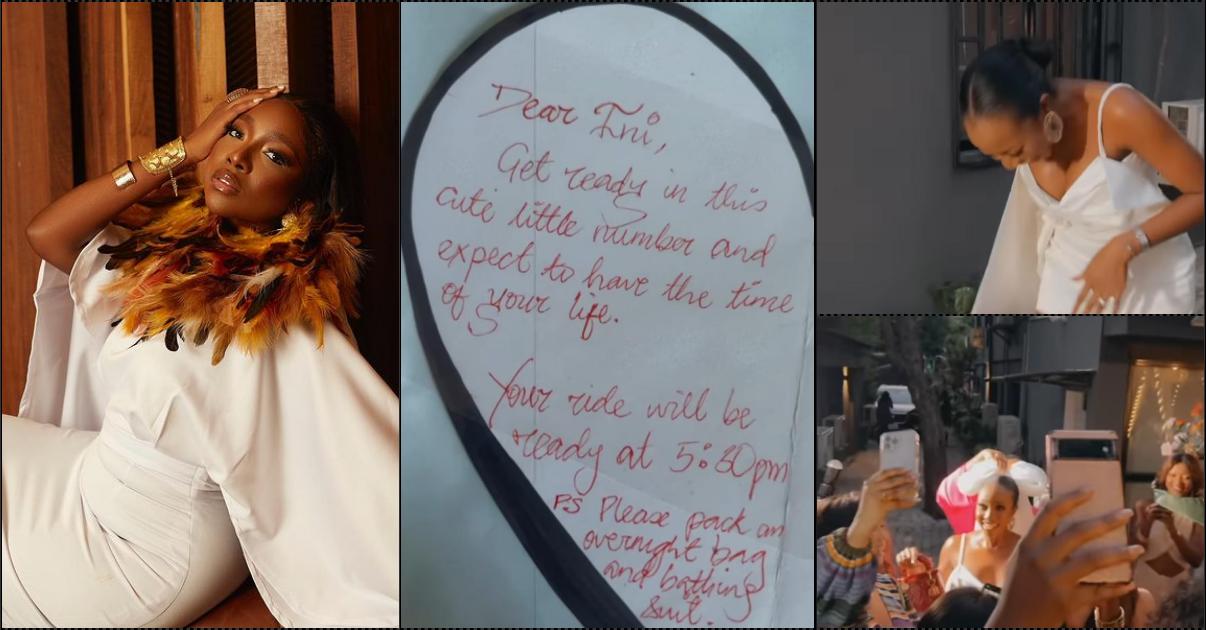 Dear Ini,
Get ready in this
cute little number and
expect to have the time
of your life.
Your ride will be
ready at 5:30pm
PS Please pack an
overnight bag
and bathing
suit.